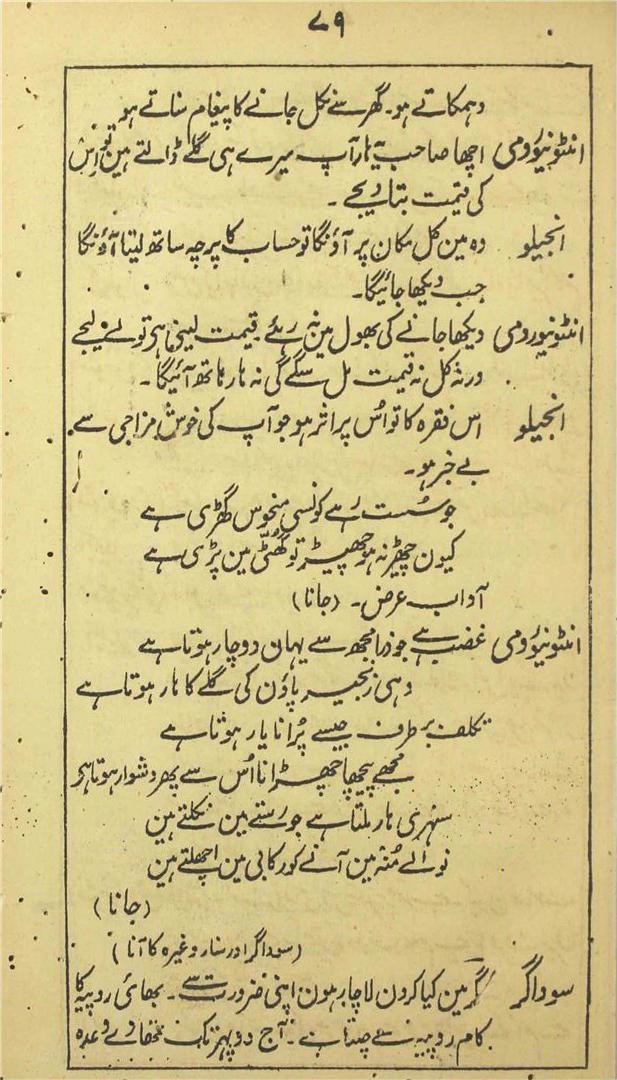 ۷۹
دہمکاتے ہو۔ گھر سے نکل جانے کا پیغام سناتے ہو
انٹونیؤرومی اچھا صاحب یہ ہار آپ میرے ہی گلے ڈالتے ہین تو اس
کی قیمت بتا دیجے۔
انجیلو وہ مین کل مکان پر آؤنگا تو حساب کا پرچہ ساتھ لیتا آؤنگا
جب دیکھا جائیگا۔
انٹونیورومی دیکھا جانے کی بھول مین نہ رہئے قیمت لینی ہی تو لے لیجے
ورنہ کل نہ قیمت مل سکے گی نہ ہار ہاتھ آئیگا۔
انجیلو اس فقرہ کا تو اُس پر اثر ہو جو آپ کی خوش مزاجی سے
بے خبر ہو۔
جو سُست رہے کونسی منحوس گھڑی ہے
کیون چھیڑ نہ ہو چھیڑ تو گھٹّی مین پڑی ہے
آداب عرض۔ (جانا)
انٹونیؤرومی غضب ہے جو ذرا مجھ سے یہان دوچار ہوتا ہے
وہی زنجیر پاؤن کی گلے کا ہار ہوتا ہے
تکلف برطرف جیسے پُرانا یار ہوتا ہے
مجھے پیچھا چھڑانا اُس سے پھر دشوار ہوتا ہی
سنہری ہار ملتا ہے جو رستے مین نکلتے ہین
نوالے مُنہ مین آنے کو رکابی مین اچھلتے ہین
(جانا)
(سوداگر اور سنار وغیرہ کا آنا)
سوداگر مگر مین کیا کرون لاچار ہون اپنی ضرورت سے۔ بھائی روپیہ کا
کام روپیہ سے چلتا ہے۔ آج دوپہر تک وعدہ